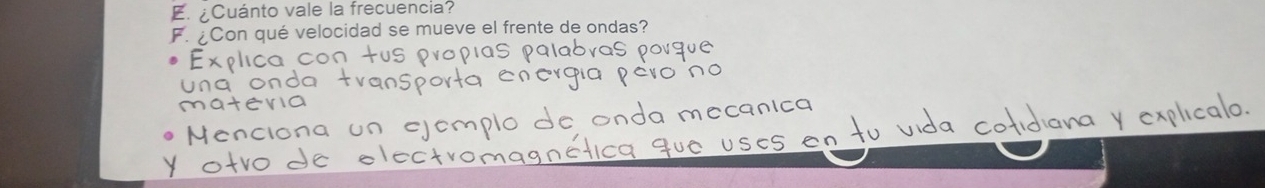 E. ¿Cuánto vale la frecuencia?
F. ¿Con qué velocidad se mueve el frente de ondas?
• Explica con tus propias palabras porque
una onda transporta energia pero no
materia
• Menciona un ejemplo de onda mecanica
y otro de electromagnética que uses en tu vida cotidiana y explicalo.